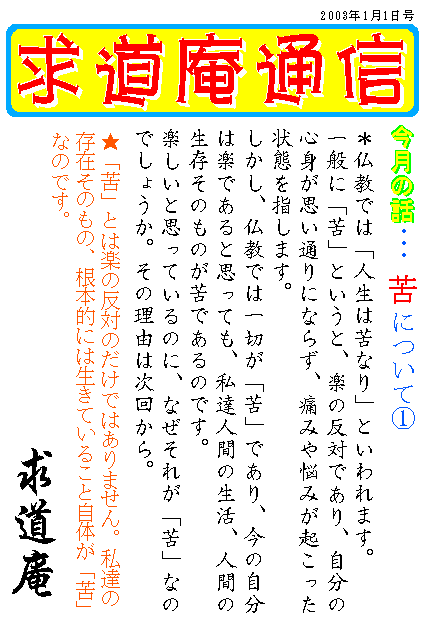 2003年1月1日号
求道庵通信
今月の話…苦について①
＊仏教では「人生は苦なり」といわれます。
一般に「苦」というと、楽の反対であり、自分の
心身が思い通りにならず、痛みや悩みが起こった
状態を指します。
しかし、仏教では一切が「苦」であり、今の自分
は楽であると思っても、私達人間の生活、人間の
生存そのものが苦であるのです。
楽しいと思っているのに、なぜそれが「苦」なの
でしょうか。その理由は次回から。
★「苦」とは楽の反対のだけではありません。私達の
存在そのもの、根本的には生きていること自体が「苦」
なのです。
求道庵